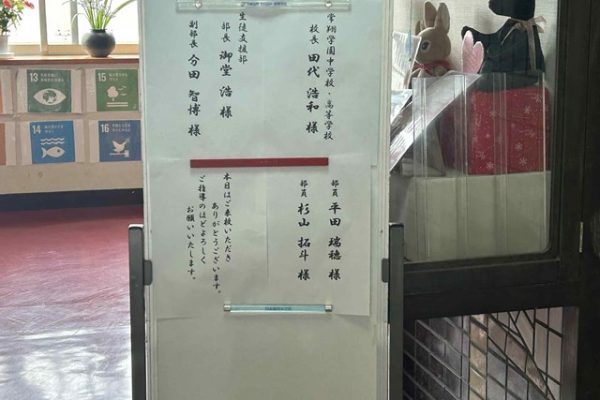 常翔学園中学校・高等学校
校長 田代 浩和 様
生徒支援部
部長 御堂 浩 様
副部長 合田 智博 様
部員 平田 瑞穂 様
部員 杉山 拓斗 様
本日はご来校いただき
ありがとうございます。
ご指導のほどよろしく
お願いいたします。
13
15
14
16